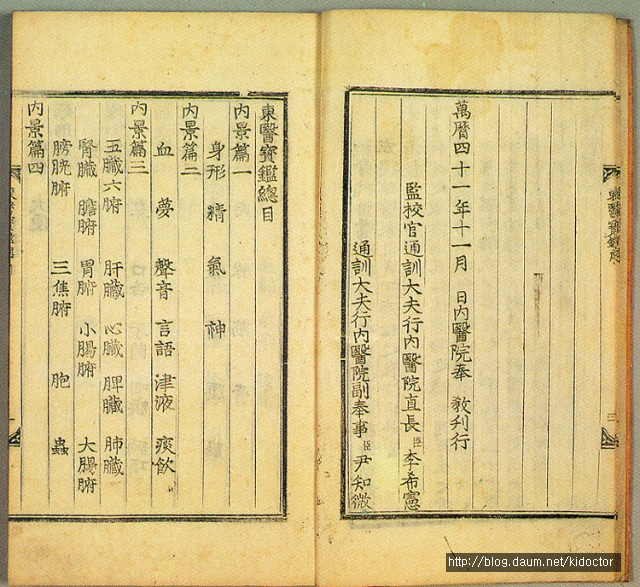 萬曆四十一年十一月 日內醫院奉 敎刊行
監校官通訓大夫行內醫院直長臣李希憲
通訓大夫行內醫院副奉事臣尹知微
東醫寶鑑總目
內景篇一
身形 精 氣 神
內景篇二
血 夢 聲音 言語 津液 痰飮
內景篇三
五臟六腑 肝臟 心臟 脾臟 肺臟
腎臟 膽腑 胃腑 小腸腑 大腸腑
膀胱腑 三焦腑 胞 蟲
內景篇四
東醫寶鑑序
http://blog.daum.net/kidoctor